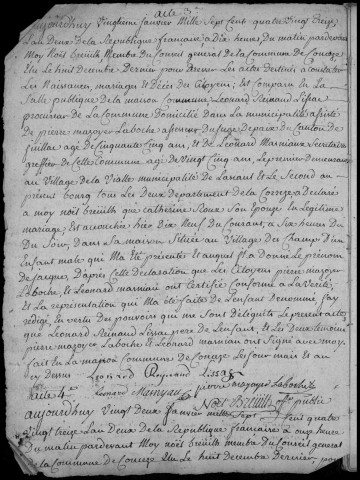 acte 3e
aujourd'huy vingtieme janvier Mille Sept Cent quatre vingt Treize
L'an Deux de la République francaise a Dix heures du matin pardevant
Moy Noël breuilh Membre du Conseil general de la Commune de Couzeze
Elue le huit Decembre Dernier pour Dresser Les actes Destinés a constater
Les Naissances, mariages et Décés des Citoyens; Est Comparu en La
Salle publique de la maison Commune Leonard Reinaud Lissac
procureur de La Commune Domicilié Dans la municipalité assisté
de pierre mazoyer Laboche assesseur du juge De paix du Canton de
juillac agé de Cinquante Cinq ans, et de Léonard Marniaux Secretaire
greffier de Cette Commune agé de Vingt Cinq ans, Le premier Demeurant
au Village de la Vialle municipalité de Lascaux et Le Second au
présent bourg tous Les Deux departement de la Correze a Declaré
a moy Noël breuilh que catherine Roux Son Epouse En Légitime
mariage, Est accouchée hier Dix Neuf du Courant, a Six heures Du
Du Soir, dans Sa maison Située au Village des Champs D'un
Enfant male qui M'a eté presenté et auquel Il a Donné Le prénom
de jacques, D'apres Cette Declaration que Les Citoyens pierre mazoyer
Laboche et Leonard marniau ont Certifiée Conforme a La Verité,
et La représentation qui M'a eté faite de L'enfant Denommé, j'ay
rédigé, En vertu des pouvoirs qui me Sont délégués Le present acte,
que Leonard Reinaud Lissac pere de L'enfant, et Les Deux temoins
pierre mazoyer Laboche et Leonard marniau ont Signé avec moy
fait En La maison Commune de Couzeze Les jour mois et an
que Dessus Leonard Reynaud Lissac
Leonard Marnyau pierre mazoyer Laboche
acte 4e Noël Breuilh off. public
aujourd'huy Vingt Deux janvier millieu Sept Cent quatre
Vingt treize L'an Deux de La République francaise a onze heure
Du matin pardevant Moy Noël breuilh membre Du Conseil general
de La Commune de Couzeze Elu Le huit Decembre Dernier, pour